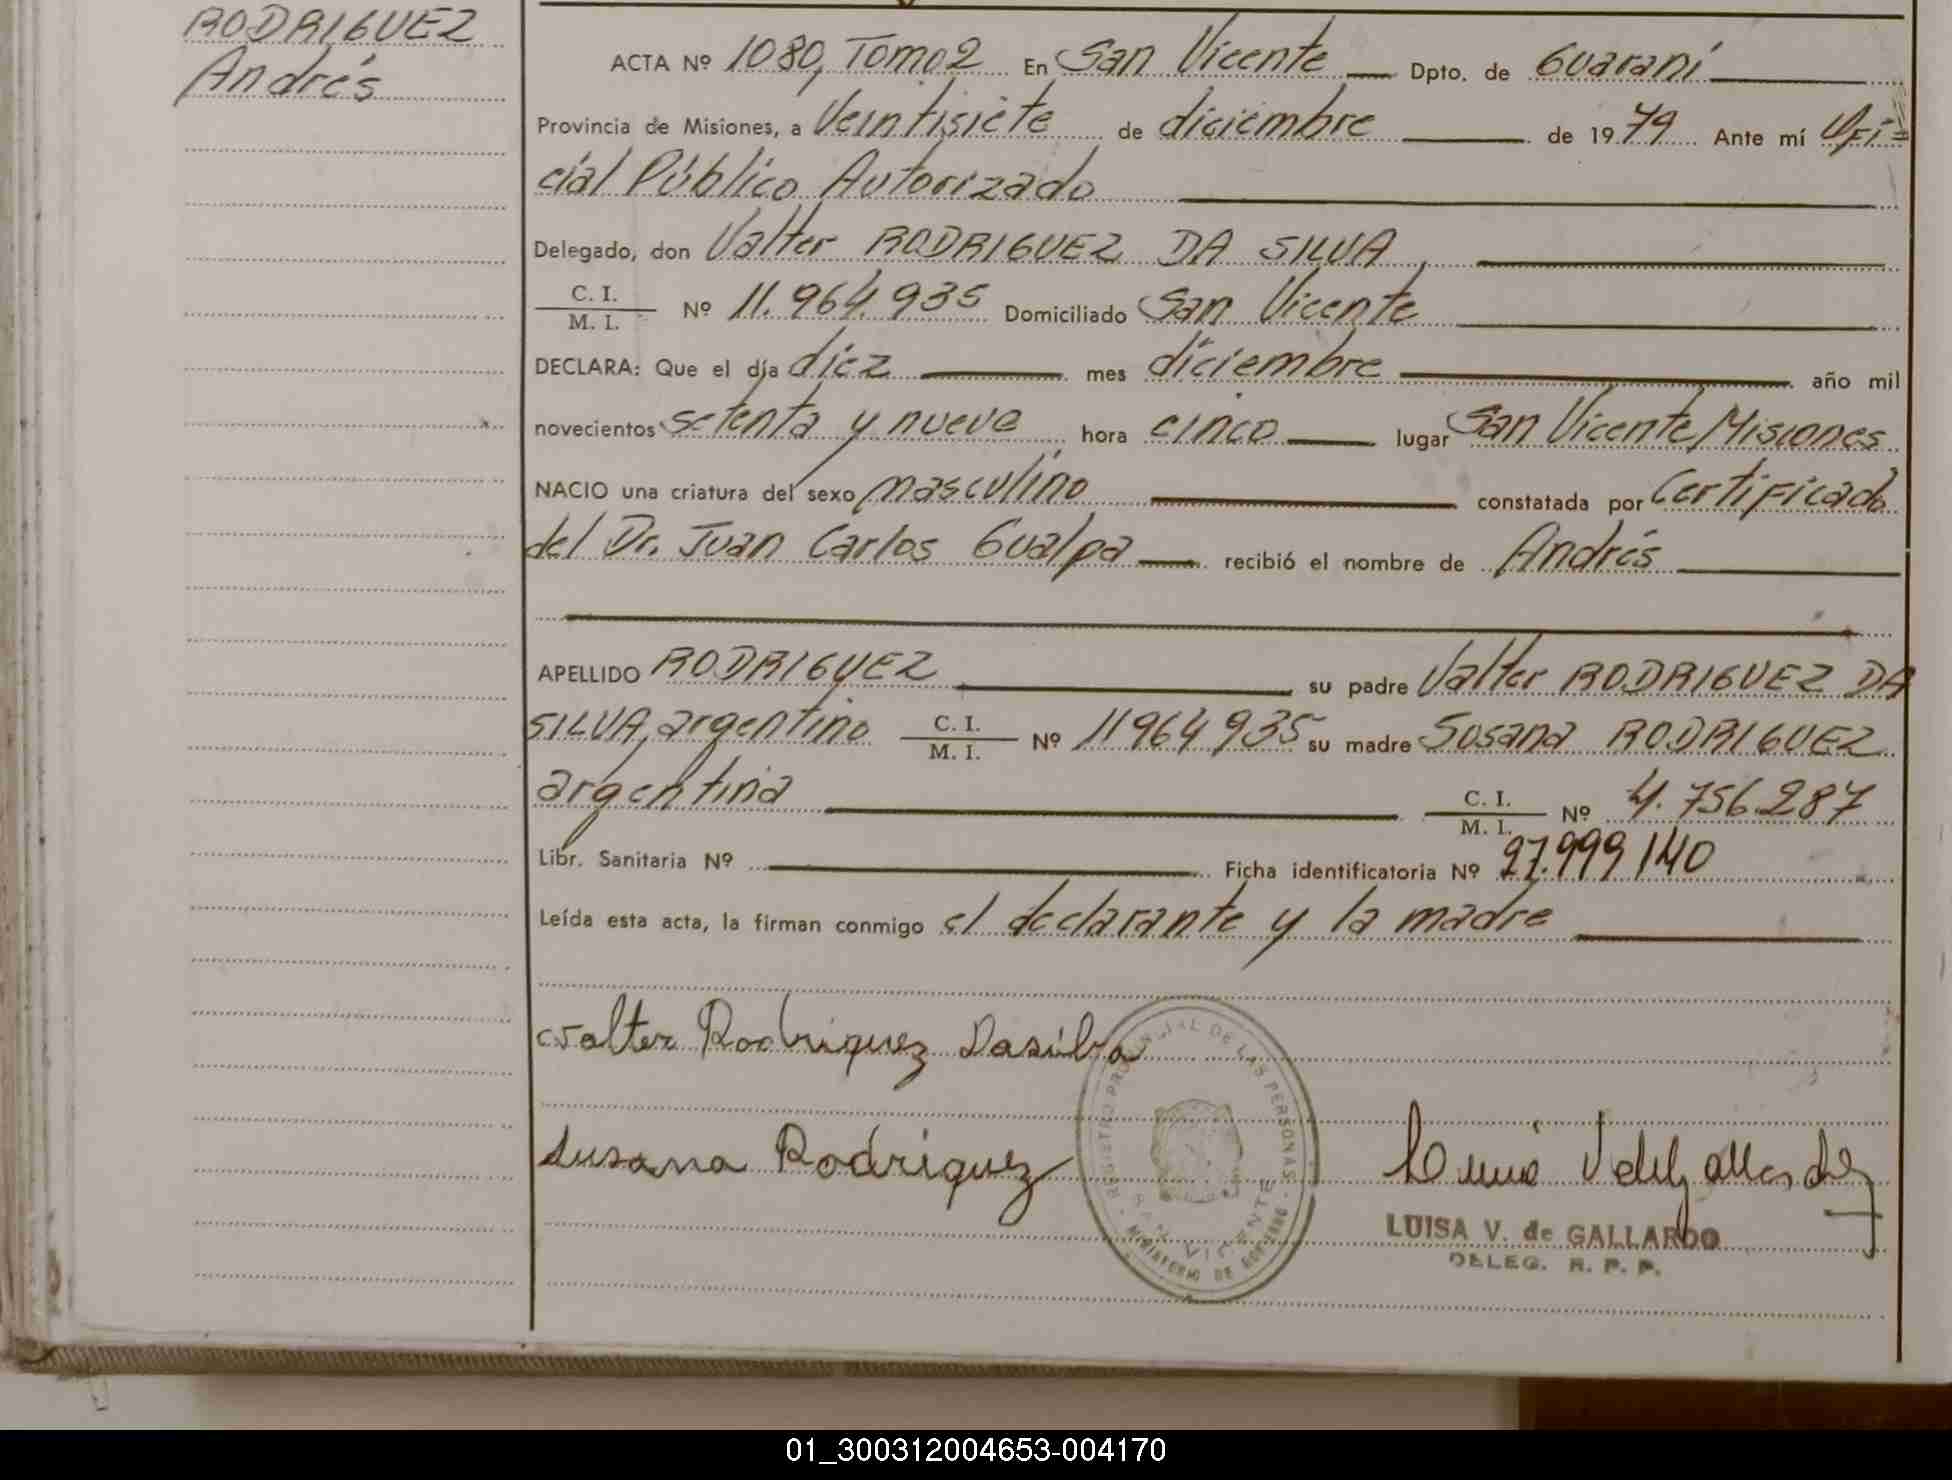 RODRIGUEZ
Andrés
ACTA Nº 1080, Tomo 2 En San Vicente Dpto. de Guaraní
Provincia de Misiones, a Veintisiete de diciembre de 1979 Ante mí Ofi=
cial Público Autorizado
Delegado, don Valter RODRIGUEZ DA SILVA,
C. I.
M. I. Nº 11.964.935 Domiciliado San Vicente
DECLARA: Que el día diez mes diciembre año mil
novecientos setenta y nueve hora cinco lugar San Vicente, Misiones
NACIO una criatura del sexo masculino constatada por Certificado
del Dr. Juan Carlos Gualpa recibió el nombre de Andrés
APELLIDO RODRIGUEZ su padre Valter RODRIGUEZ DA
SILVA, argentino C. I. M. I. Nº 11964935 su madre Susana RODRIGUEZ
argentina C. I. M. I. Nº 4.756.287
Libr. Sanitaria Nº Ficha identificatoria Nº 27.999140
Leída esta acta, la firman conmigo el declarante y la madre
Valter Rodriguez Dasilva
REGISTRO PROVINCIAL DE LAS PERSONAS
SAN VICENTE
MINISTERIO DE GOBIERNO
Susana Rodriguez
LUISA V. de GALLARDO
DELEG. R. P. P.
01_300312004653-004170